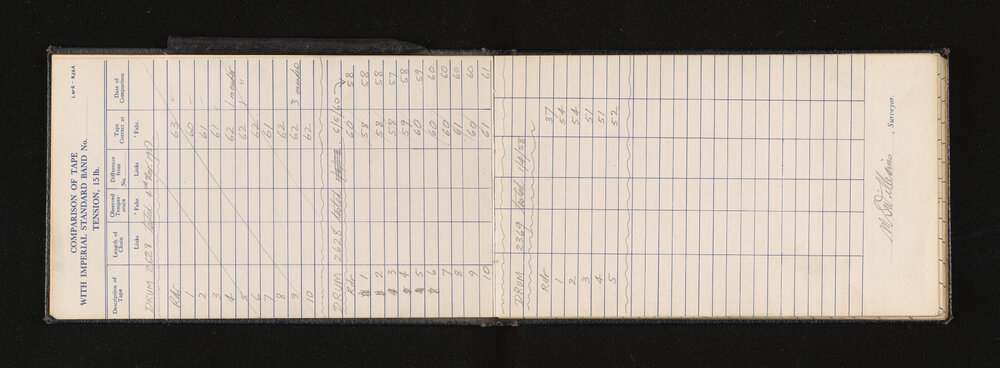 L & S - R26A
COMPARISON OF TAPE
WITH IMPERIAL STANDARD BAND No.
TENSION, 15 lb.
Description of Tape | Length of Chain | Observed Temperature | Difference from No. | Tape Correct at | Date of Comparison
Links | ° Fahr. | Links | ° Fahr.
DRUM 2628 tested 4th Mar. 1957
Rdr 63 -
1 60 -
2 61 -
3 61
4 62
5 62 "
6 62
7 61
8 62
9 62 3
10 62
DRUM 2628 tested 6/5/60
Rdr 60 58
1 58 58
2 58 58
3 58 57
4 59 58
5 60 59
6 60 60
7 60 60
8 61 60
9 60 60
10 61 61
DRUM 2369 tested 1/4/58
Rdr 37
1 54
2 54
3 51
4 51
5 52
, Surveyor.